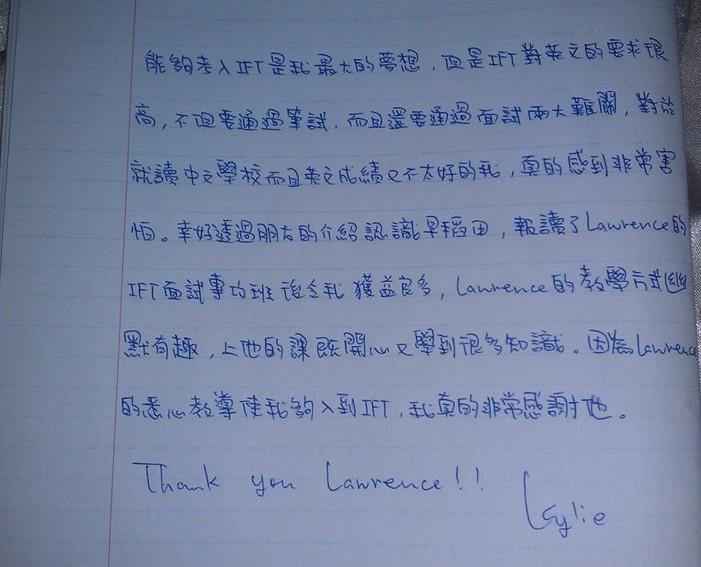 能夠考入IFT是我最大的夢想，但是IFT對英文的要求很
高，不但要通過筆試，而且還要通過面試兩大難關，對於
就讀中文學校而且英文成績又不太好的我，真的感到非常害
怕。幸好透過朋友的介紹認識早稻田，報讀了Lawrence的
IFT面試專攻班後令我獲益良多，Lawrence的教學方式幽
默有趣，上他的課既開心又學到很多知識。因為Lawrence
的悉心教導使我夠入到IFT，我真的非常感謝他。
Thank you Lawrence!!
Kylie